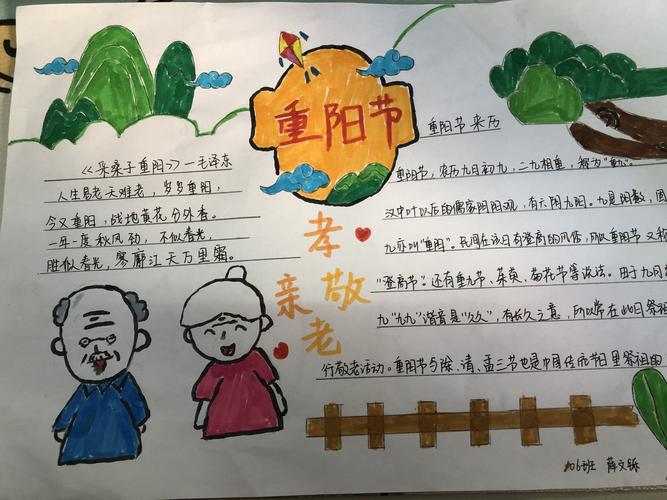 重阳节
《采桑子重阳》—毛泽东
人生易老天难老，岁岁重阳，
今又重阳，战地黄花分外香。
一年一度秋风劲，不似春光，
胜似春光，寥廓江天万里霜。
孝
亲 敬
老
重阳节来历
重阳节，农历九月初九，二九相重，称为"重九"。
汉中叶以后的儒家阴阳观，有六阴九阳。九是阳数，固
九亦叫"重阳"。民间在该日有登高的风俗，所以重阳节又称
"登高节"。还有重九节、茱萸、菊花节等说法。由于九月初
九"九九"谐音是"久久"，有长久之意，所以常在此日祭祖
行敬老活动。重阳节与除、清、盂三节也是中国传统节日里祭祖的
06班 薛文铄